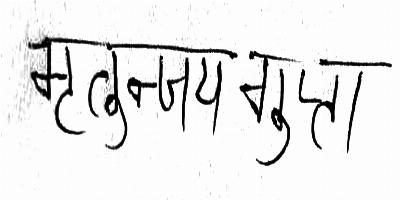 मृत्युन्जय गुप्ता